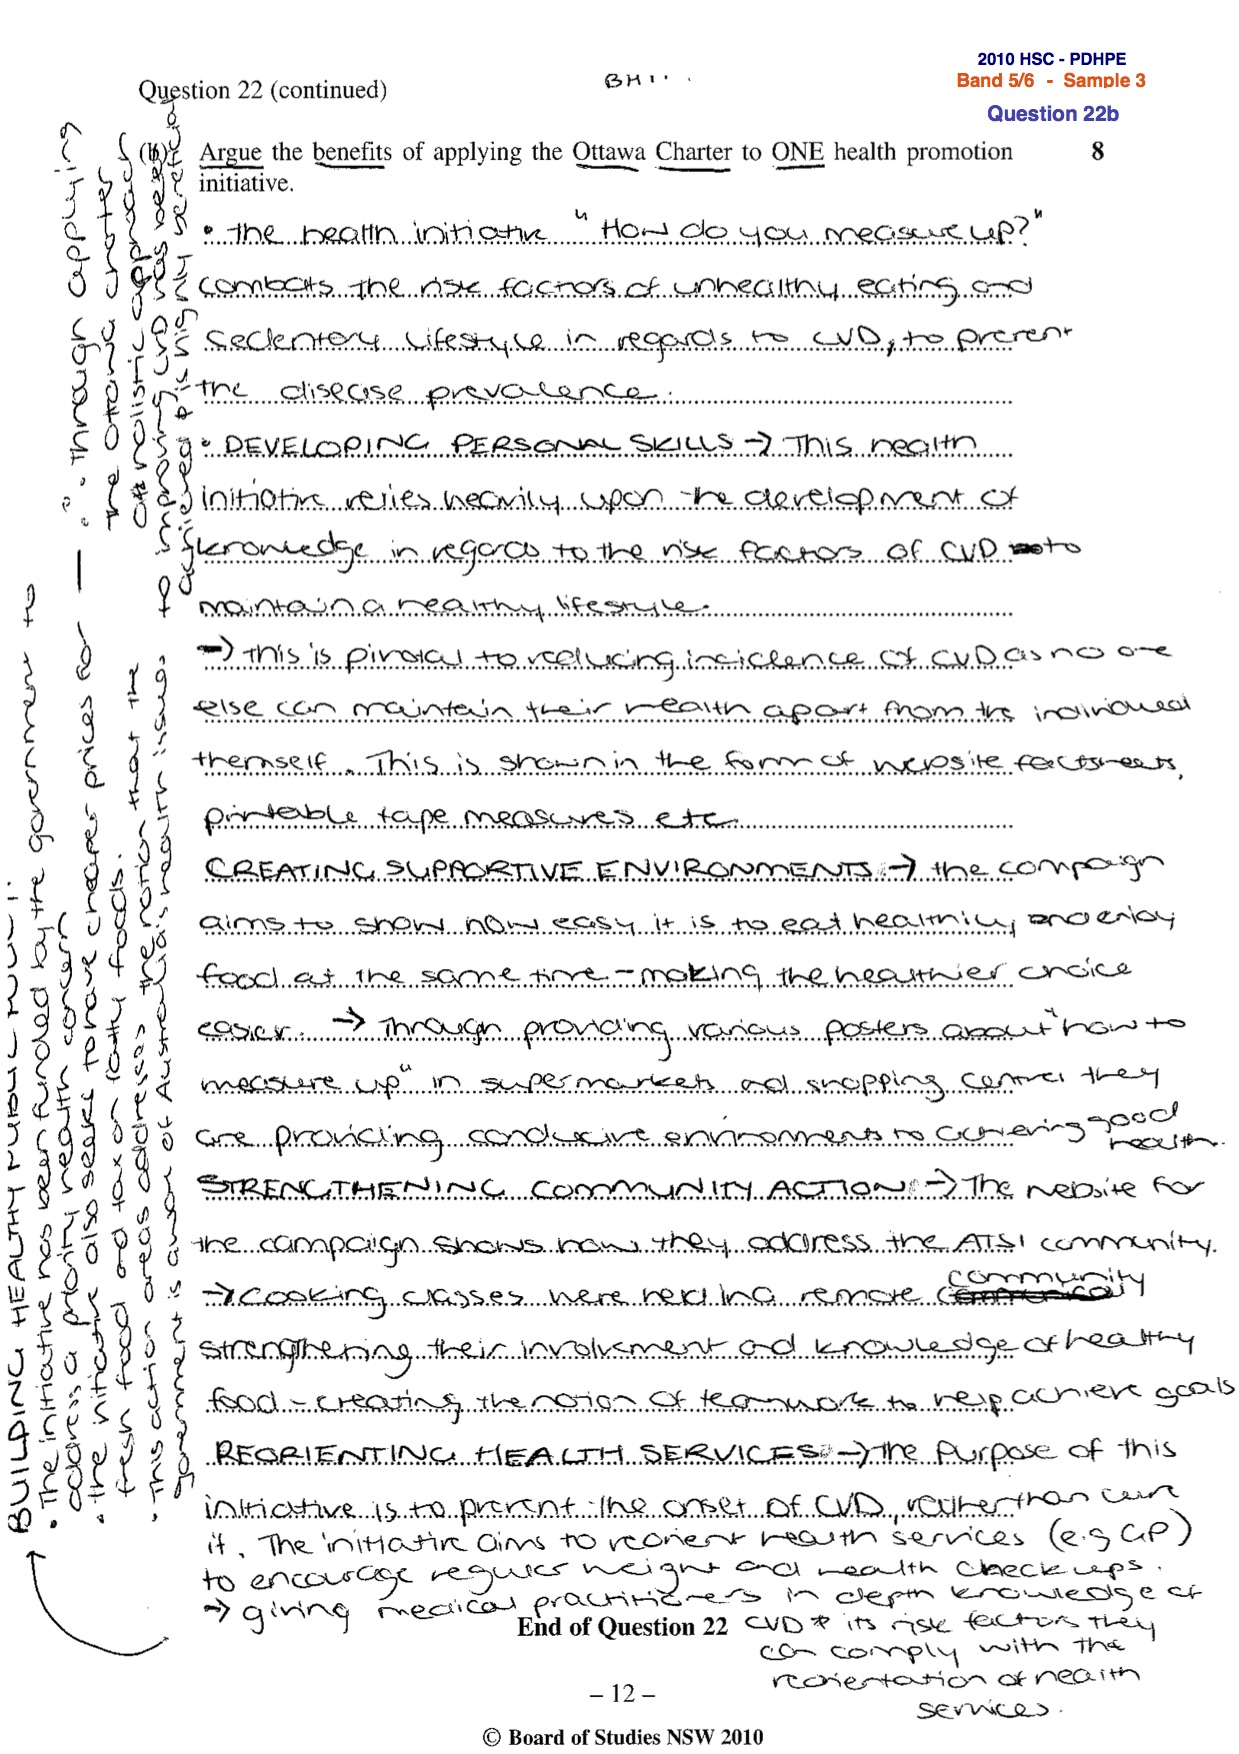 2010 HSC - PDHPE
Band 5/6 - Sample 3
Question 22b
Question 22 (continued)
BHI
(b) Argue the benefits of applying the Ottawa Charter to ONE health promotion 8
initiative.
• The health initiative "How do you measure up?"
combats the risk factors of unhealthy eating and
sedentery lifestyle in regards to CVD, to prevent
the disease prevalence.
• DEVELOPING PERSONAL SKILLS → This health
initiative relies heavily upon the development of
knowledge in regards to the risk factors of CVD to
maintain a healthy lifestyle.
→ this is pivotal to reducing incidence of CVD as no one
else can maintain their health apart from the individual
themself. This is shown in the form of website factsheets,
printable tape measures etc.
CREATING SUPPORTIVE ENVIRONMENTS: → the campaign
aims to show how easy it is to eat healthily and enjoy
food at the same time - making the healthier choice
easier. → Through providing various posters about "how to
measure up" in supermarkets and shopping centres they
are providing conducive environments to achieving good
health.
STRENGTHENING COMMUNITY ACTION: → The website for
the campaign shows how they address the ATSI community.
→ Cooking classes were held in a remote community
strengthening their involvement and knowledge of healthy
food - creating the notion of teamwork to help achieve goals
REORIENTING HEALTH SERVICES: → The purpose of this
initiative is to prevent the onset of CVD, rather than cure
it. The initiative aims to reorient health services (e.g GP)
to encourage regular weight and health check ups.
→ giving medical practitioners in depth knowledge of
CVD & its risk factors they
can comply with the
reorientation of health
services.
BUILDING HEALTHY PUBLIC POLICY:
• The initiative has been funded by the government to
address a priority health concern
• the initiative also seeks to have cheaper prices for
fresh food and tax on fatty foods.
• This action areas addresses the notion that the
government is aware of Australia's health issues
• ∴ Through applying
the Ottawa charter
a holistic approach
to improving CVD has been
achieved & is highly beneficial
End of Question 22
– 12 –
© Board of Studies NSW 2010